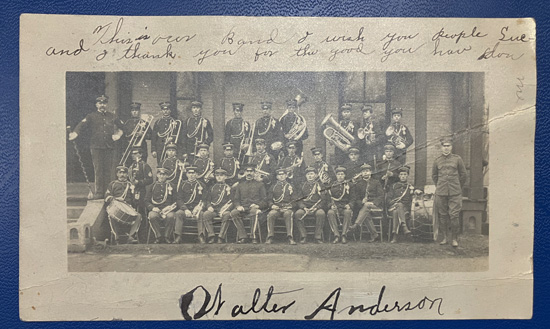 "This is our Band I wish you people Suc
and I thank you for the good you have don
me
Walter Anderson